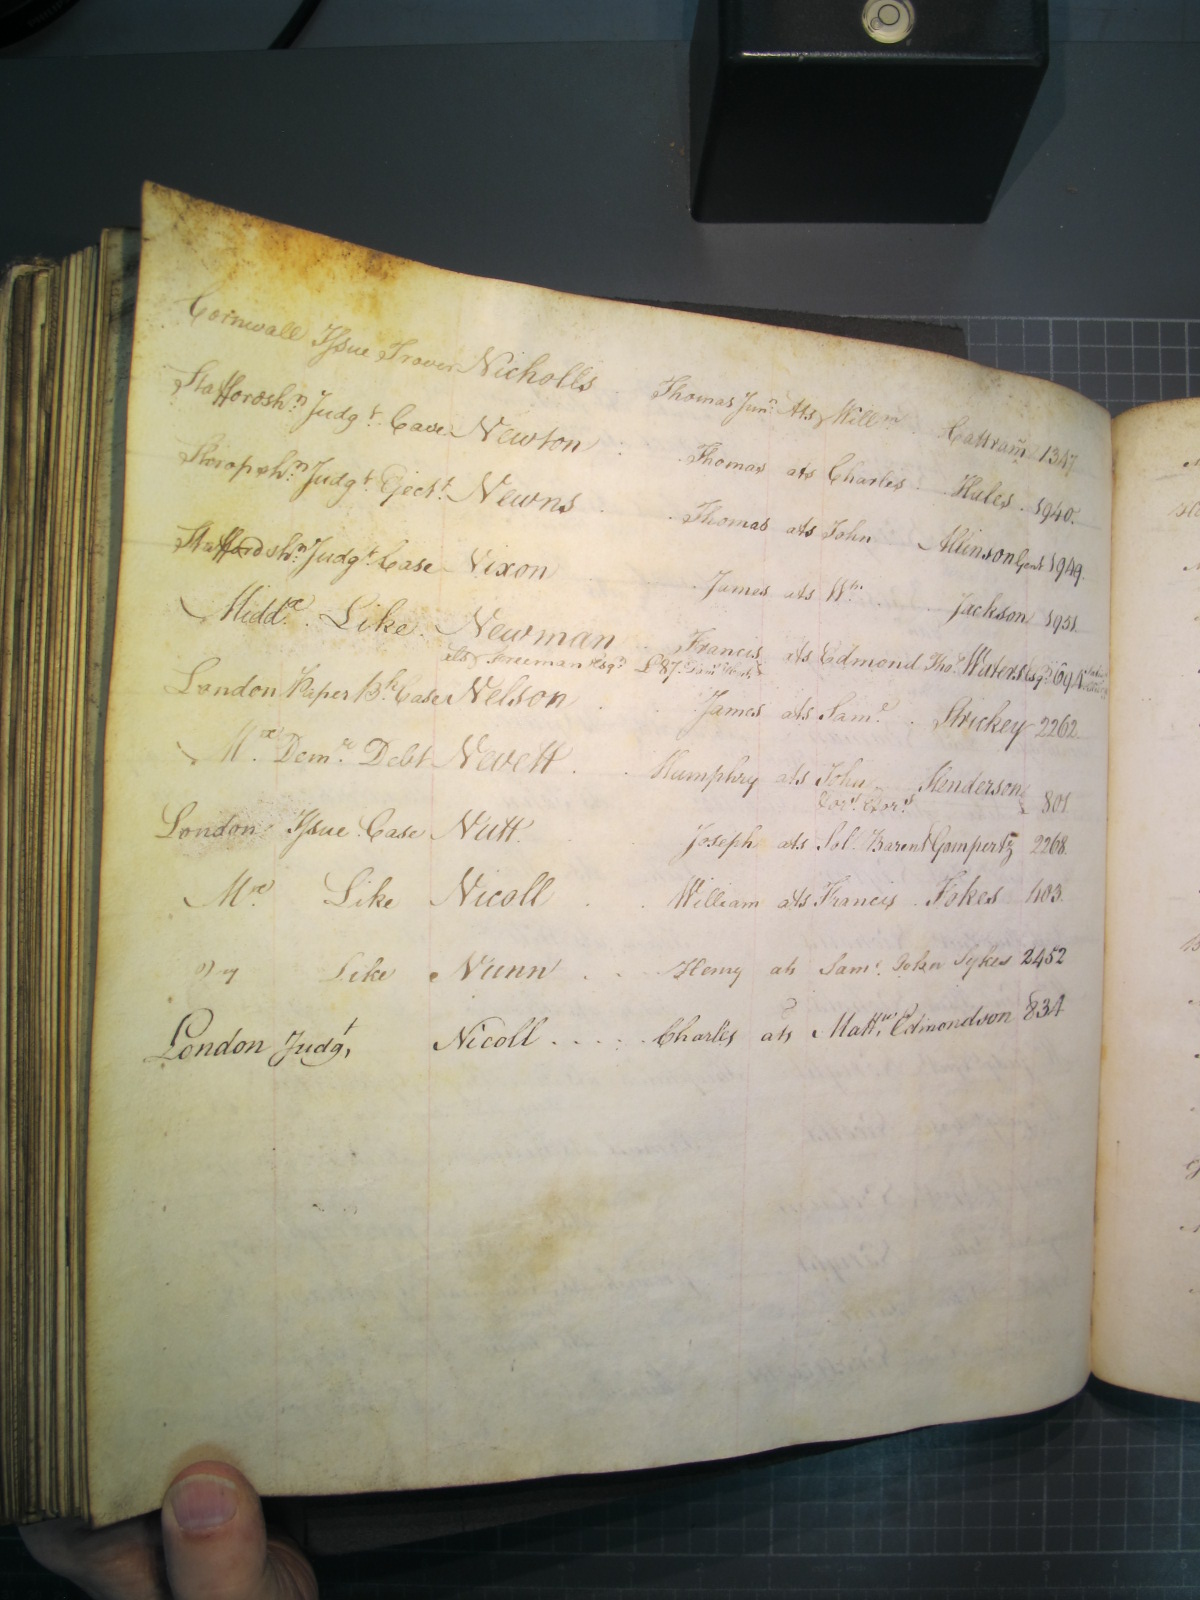 Cornwall Issue Trover Nicholls . Thomas Junr. Ats Willm. Cattram 1347
Staffordshr. Judgt. Case Newton . Thomas ats Charles . Hules . 1940.
Shropshr. Judgt. Ejectt. Newns . . Thomas ats John Allinson Gent 1949.
Staffordshr. Judgt. Case Nixon James ats Wm. Jackson 1951.
Middx. Like. Newman . Francis ats Edmond Thos. Waters Esqr.
ats Freeman Esqr.
London Paper Bk. Case Nelson . James ats Saml. . Strickey 2262.
Mx. Demr. Debt Nevett . . Humphry ats John Henderson 801
London Issue Case Nutt. Joseph ats Sol. Barent Gompertz 2268.
Mx. Like Nicoll . . William ats Francis . Fokes 403.
Like Nunn . . . Henry ats Saml. John Sykes 2452
London Judgt. Nicoll . . . . . Charles ats Mattw. Edmondson 834